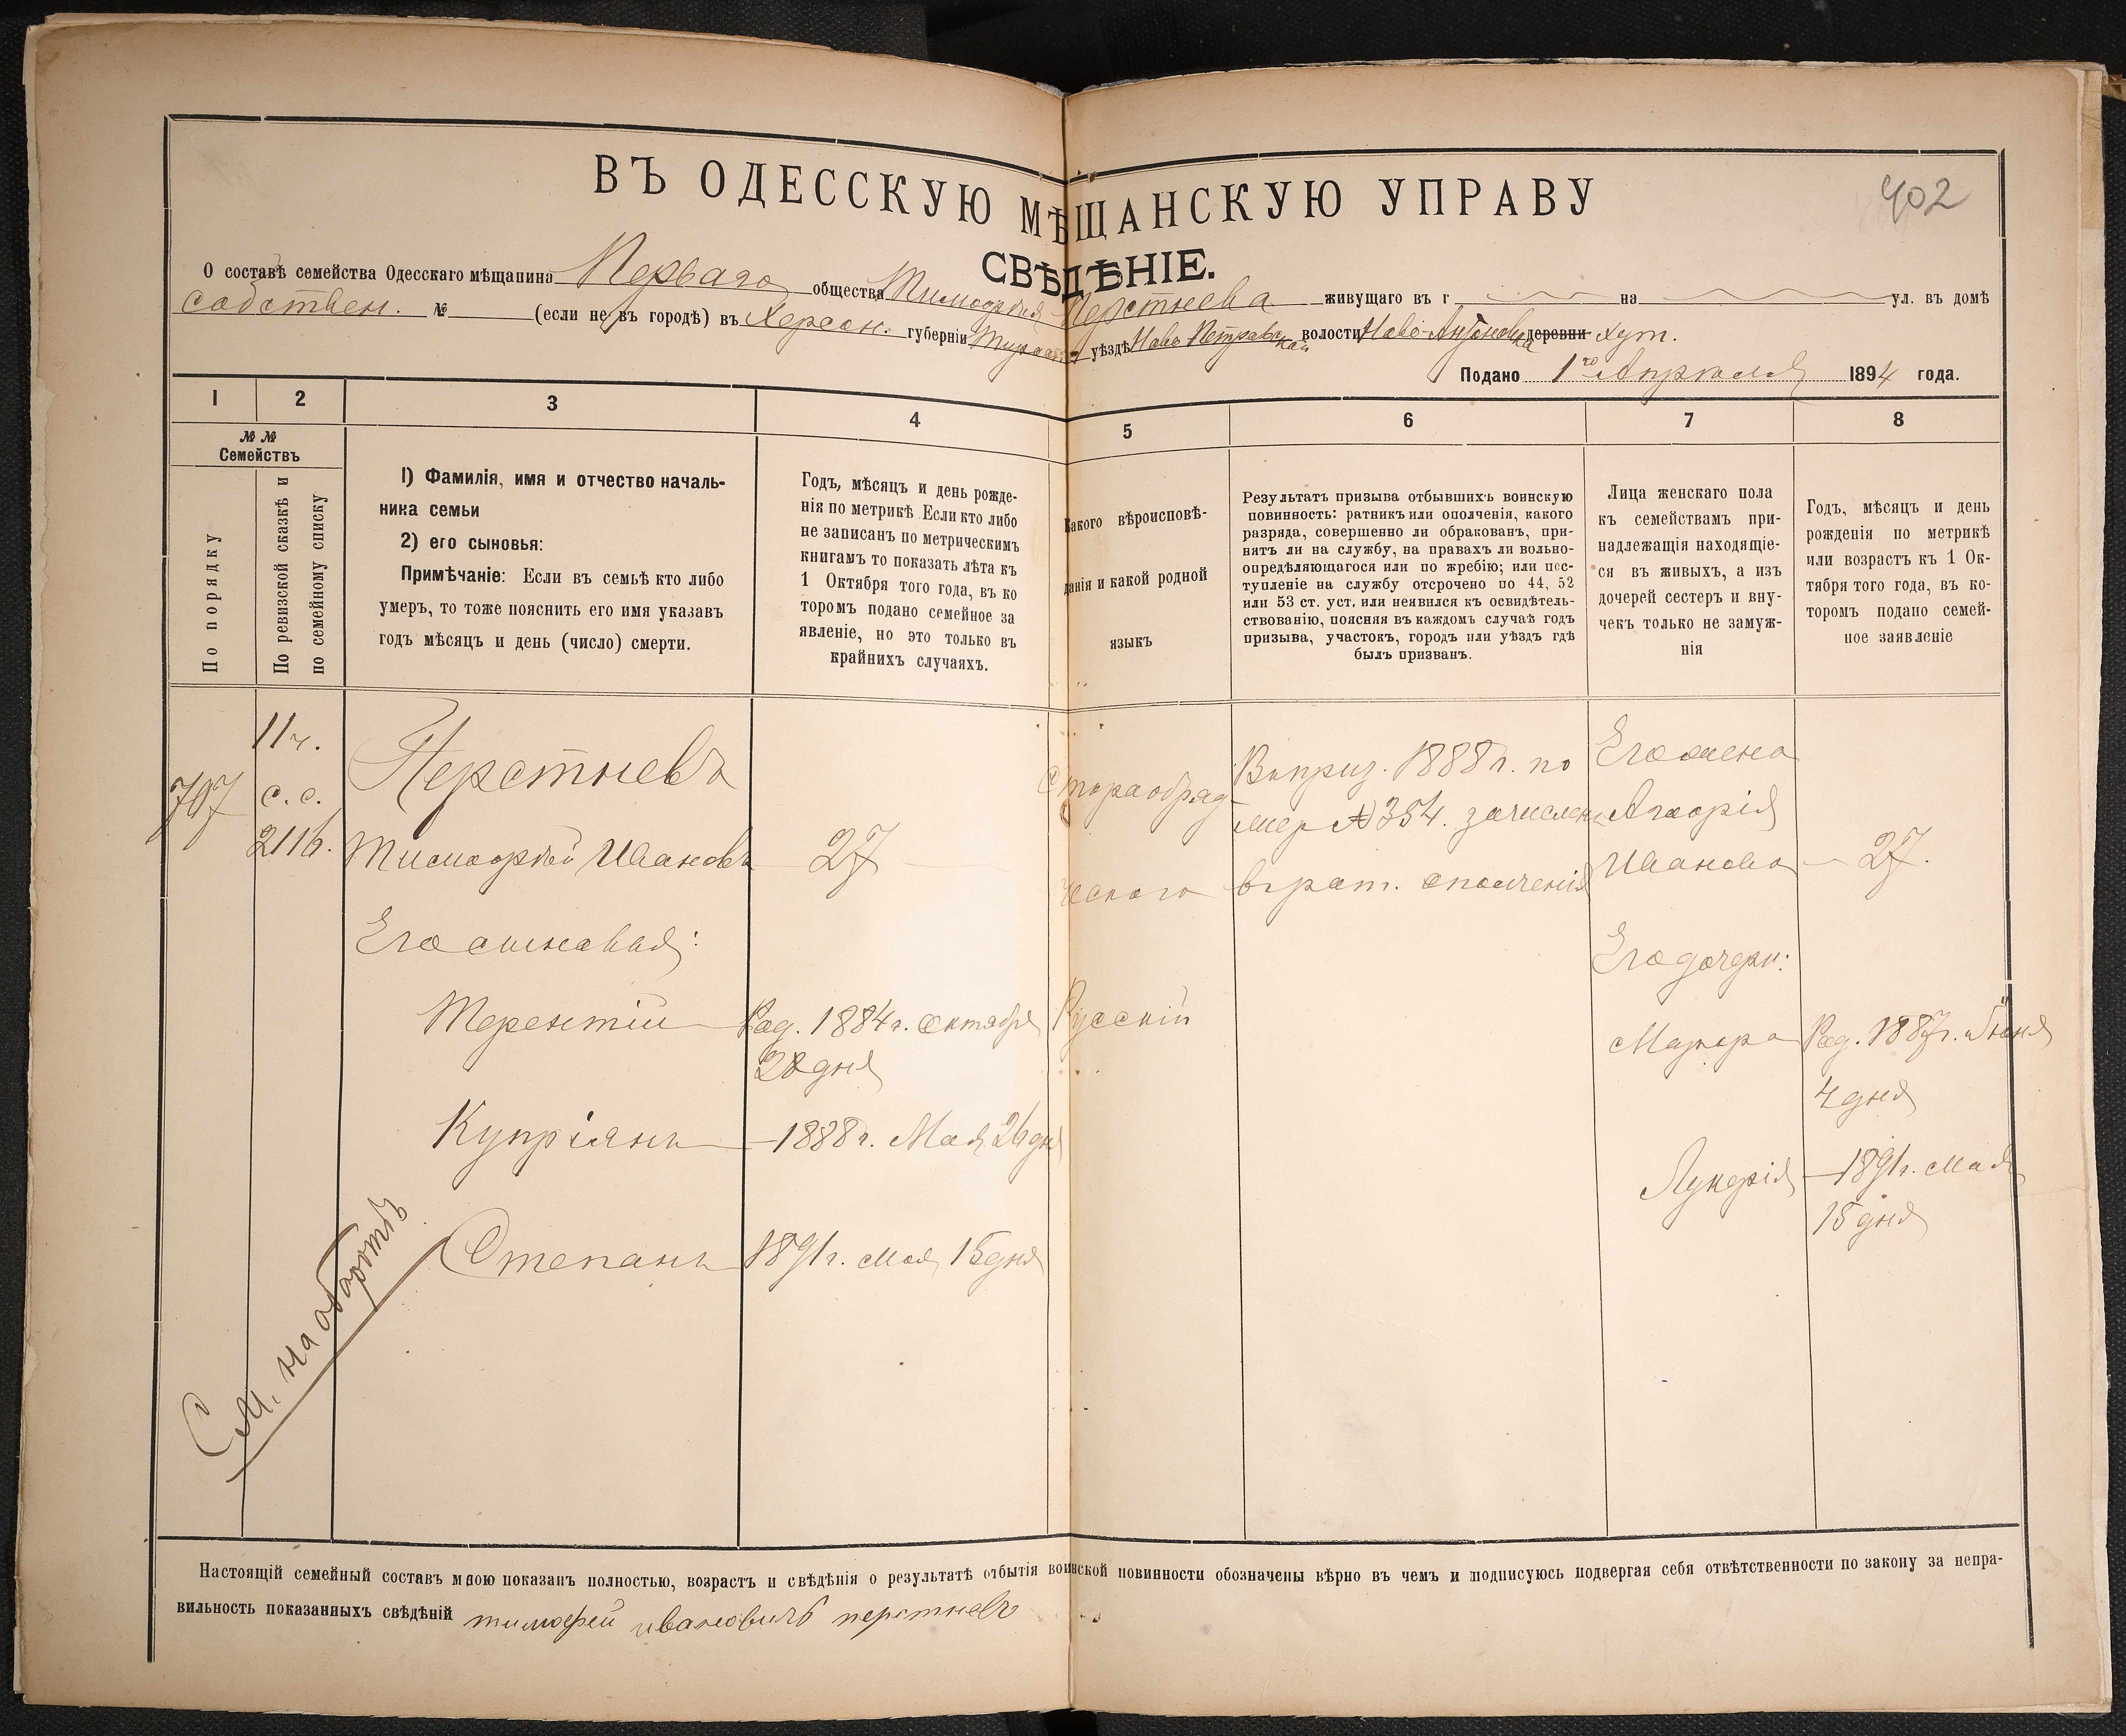 402
ВЪ ОДЕССКУЮ МѢЩАНСКУЮ УПРАВУ
СВѢДѢНІЕ.
О составѣ семейства Одесскаго мѣщанина Перваго общества Тимофѣя Перстнева живущаго въ г на ул. въ домѣ
собствен. № (если не въ городѣ) въ Херсон. губерніи уѣздѣ Ново Петровской волости Ново-Антоновка деревни хут.
Подано 1го Апрѣля 1894 года.
1 2 3 4 5 6 7 8
№ №
Семействъ
По порядку
По ревизской сказкѣ и
по семейному списку
1) Фамилія, имя и отчество началь-
ника семьи
2) его сыновья:
Примѣчаніе: Если въ семьѣ кто либо
умеръ, то тоже пояснить его имя указавъ
годъ мѣсяцъ и день (число) смерти.
Годъ, мѣсяцъ и день рожде-
нія по метрикѣ. Если кто либо
не записанъ по метрическимъ
книгамъ то показать лѣта къ
1 Октября того года, въ ко
торомъ подано семейное за
явленіе, но это только въ
крайнихъ случаяхъ.
Какого вѣроисповѣ-
данія и какой родной
языкъ
Результатъ призыва отбывшихъ воинскую
повинность: ратникъ или ополченія, какого
разряда, совершенно ли обракованъ, при-
нятъ ли на службу, на правахъ ли вольно-
опредѣляющагося или по жребію; или пос-
тупленіе на службу отсрочено по 44, 52
или 53 ст. уст. или неявился къ освидѣтель-
ствованію, поясняя въ каждомъ случаѣ годъ
призыва, участокъ, городъ или уѣздъ гдѣ
былъ призванъ.
Лица женскаго пола
къ семействамъ при-
надлежащія находящіе-
ся въ живыхъ, а изъ
дочерей сестеръ и вну-
чекъ только не замуж-
нія
Годъ, мѣсяцъ и день
рожденія по метрикѣ
или возрастъ къ 1 Ок-
тября того года, въ ко-
торомъ подано семей-
ное заявленіе
707
11 ч.
с. с.
2116.
Перстневъ
Тимофѣй Ивановъ 27
Его сыновья:
Терентій Род. 1884 г. Октября
28 дня
Купріянъ —1888 г. Мая 26 дня
Степанъ 1891 г. Мая 15 дня
Старообряд-
ческого
Русскій
Въ приз. 1888 г. по
жер № 354. зачислен
въ рат. ополченія
Его жена
Ивановна — 27.
Его дочери:
Род. 1887 г. Іюня
4 дня
Лукерія —1891 г. Мая
15 дня
См. на оборотѣ
Настоящій семейный составъ мною показанъ полностью, возрастъ и свѣдѣнія о результатѣ отбытія воинской повинности обозначены вѣрно въ чемъ и подписуюсь подвергая себя отвѣтственности по закону за непра-
вильность показанныхъ свѣдѣній тимофей ивановичъ перстневъ